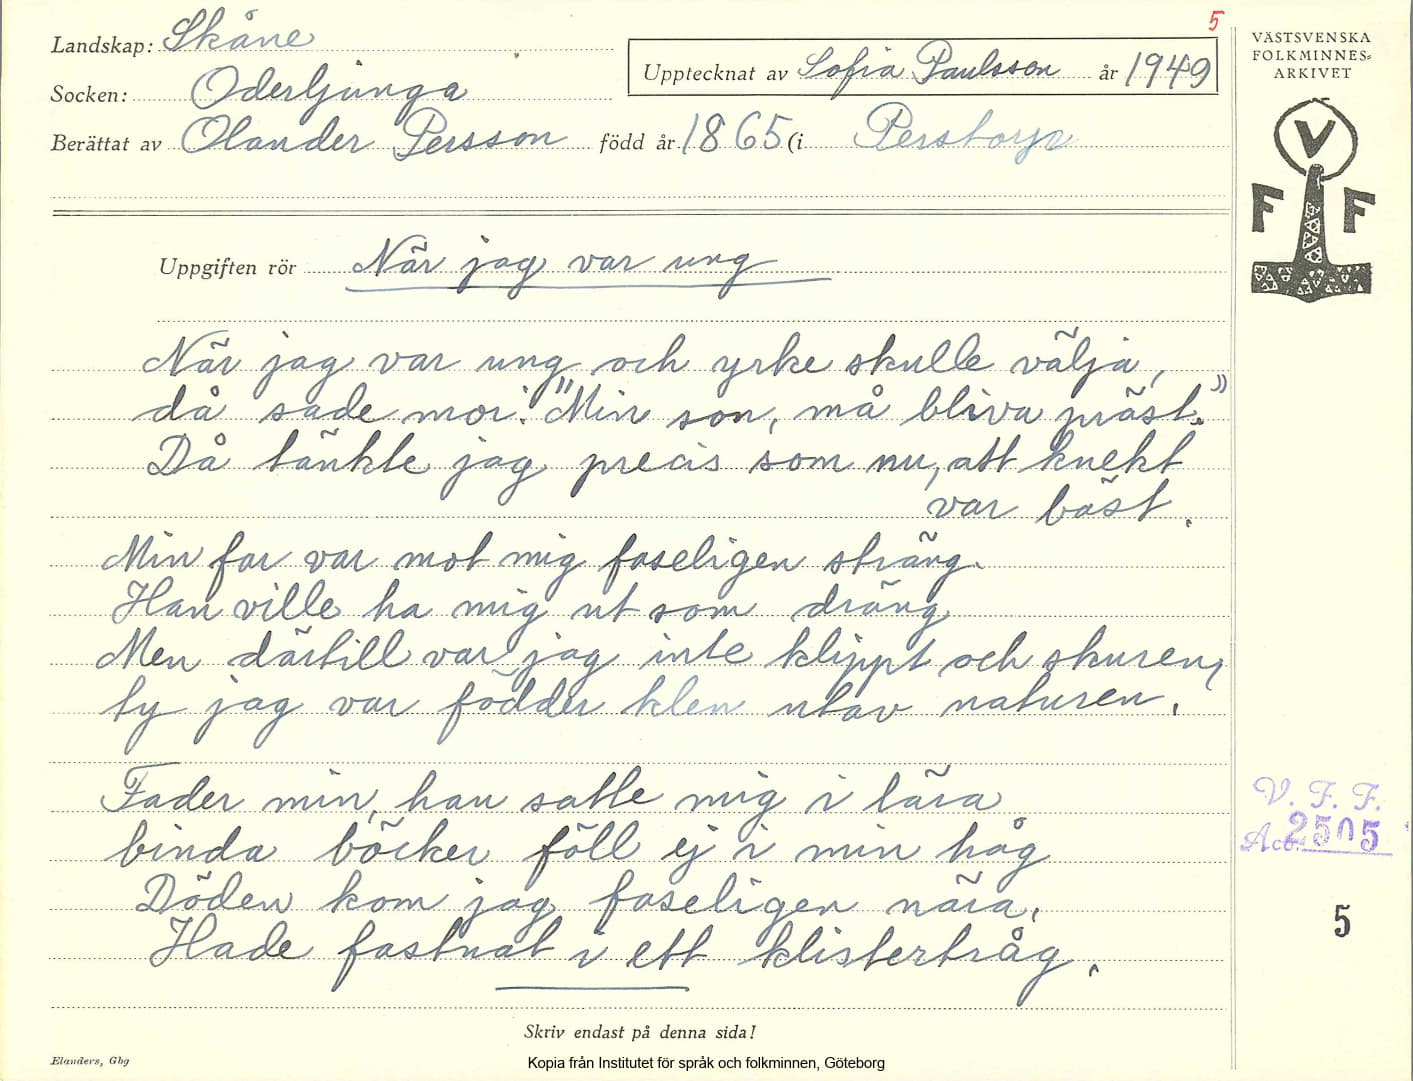 5
Landskap: Skåne
Socken: Oderljunga
Berättat av Olander Persson född år 1865 (i Perstorp
Upptecknat av Sofia Paulsson år 1949
VÄSTSVENSKA
FOLKMINNES=
ARKIVET
V
F F
Uppgiften rör När jag var ung
När jag var ung och yrke skulle välja,
då sade mor: "Min son, må bliva präst."
Då tänkte jag precis som nu, att knekt
var bäst.
Min far var mot mig faseligen sträng.
Han ville ha mig ut som dräng
Men därtill var jag inte klippt och skuren,
ty jag var födder klen utav naturen.
Fader min, han satte mig i lära
binda böcker föll ej i min håg
Döden kom jag faseligen nära,
Hade fastnat i ett klistertråg.
V. F. F.
Acc. 2505
5
Skriv endast på denna sida!
Elanders, Gbg
Kopia från Institutet för språk och folkminnen, Göteborg